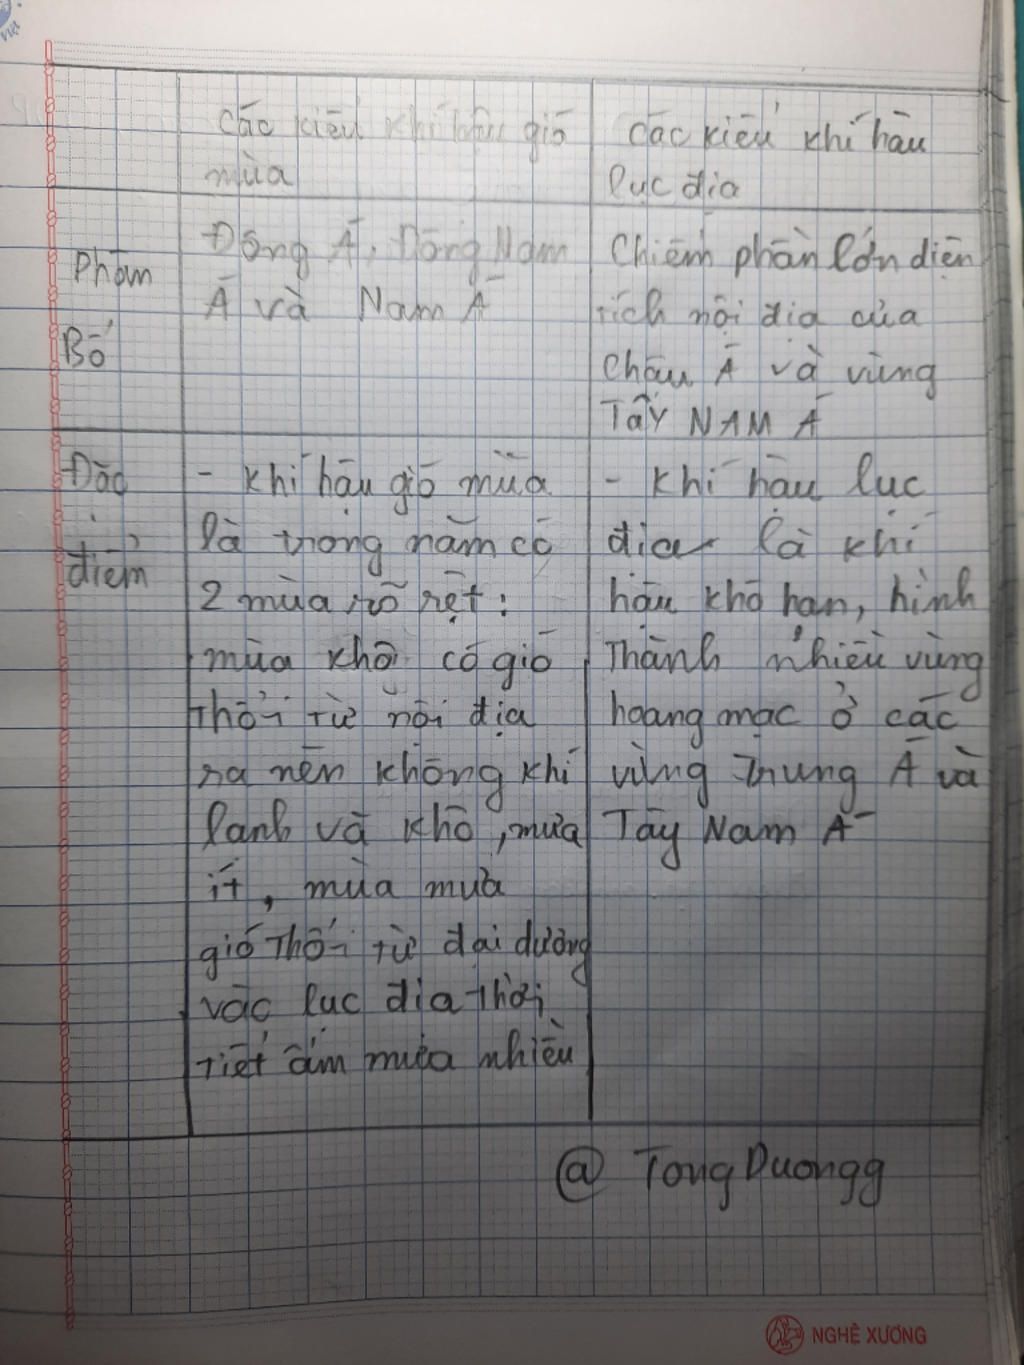 Các kiểu khí hậu gió
mùa
Các kiểu khí hậu
lục địa
Phân
Bố
Đông Á, Đông Nam
Á và Nam Á
Chiếm phần lớn diện
tích nội địa của
Châu Á và vùng
TÂY NAM Á
Đặc
điểm
- Khí hậu gió mùa
là trong năm có
2 mùa rõ rệt:
mùa khô có gió
thổi từ nội địa
ra nên không khí
lạnh và khô, mưa
ít, mùa mưa
gió thổi từ đại dương
vào lục địa thời
tiết ẩm mưa nhiều
- Khí hậu lục
địa là khí
hậu khô hạn, hình
thành nhiều vùng
hoang mạc ở các
vùng Trung Á và
Tây Nam Á
@ TongDuongg
NGHÊ XƯƠNG